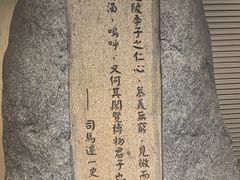 延陵季子之仁心，慕義無窮，見微而
濁，嗚呼，又何其閎覽博物君子也
——司馬遷—史